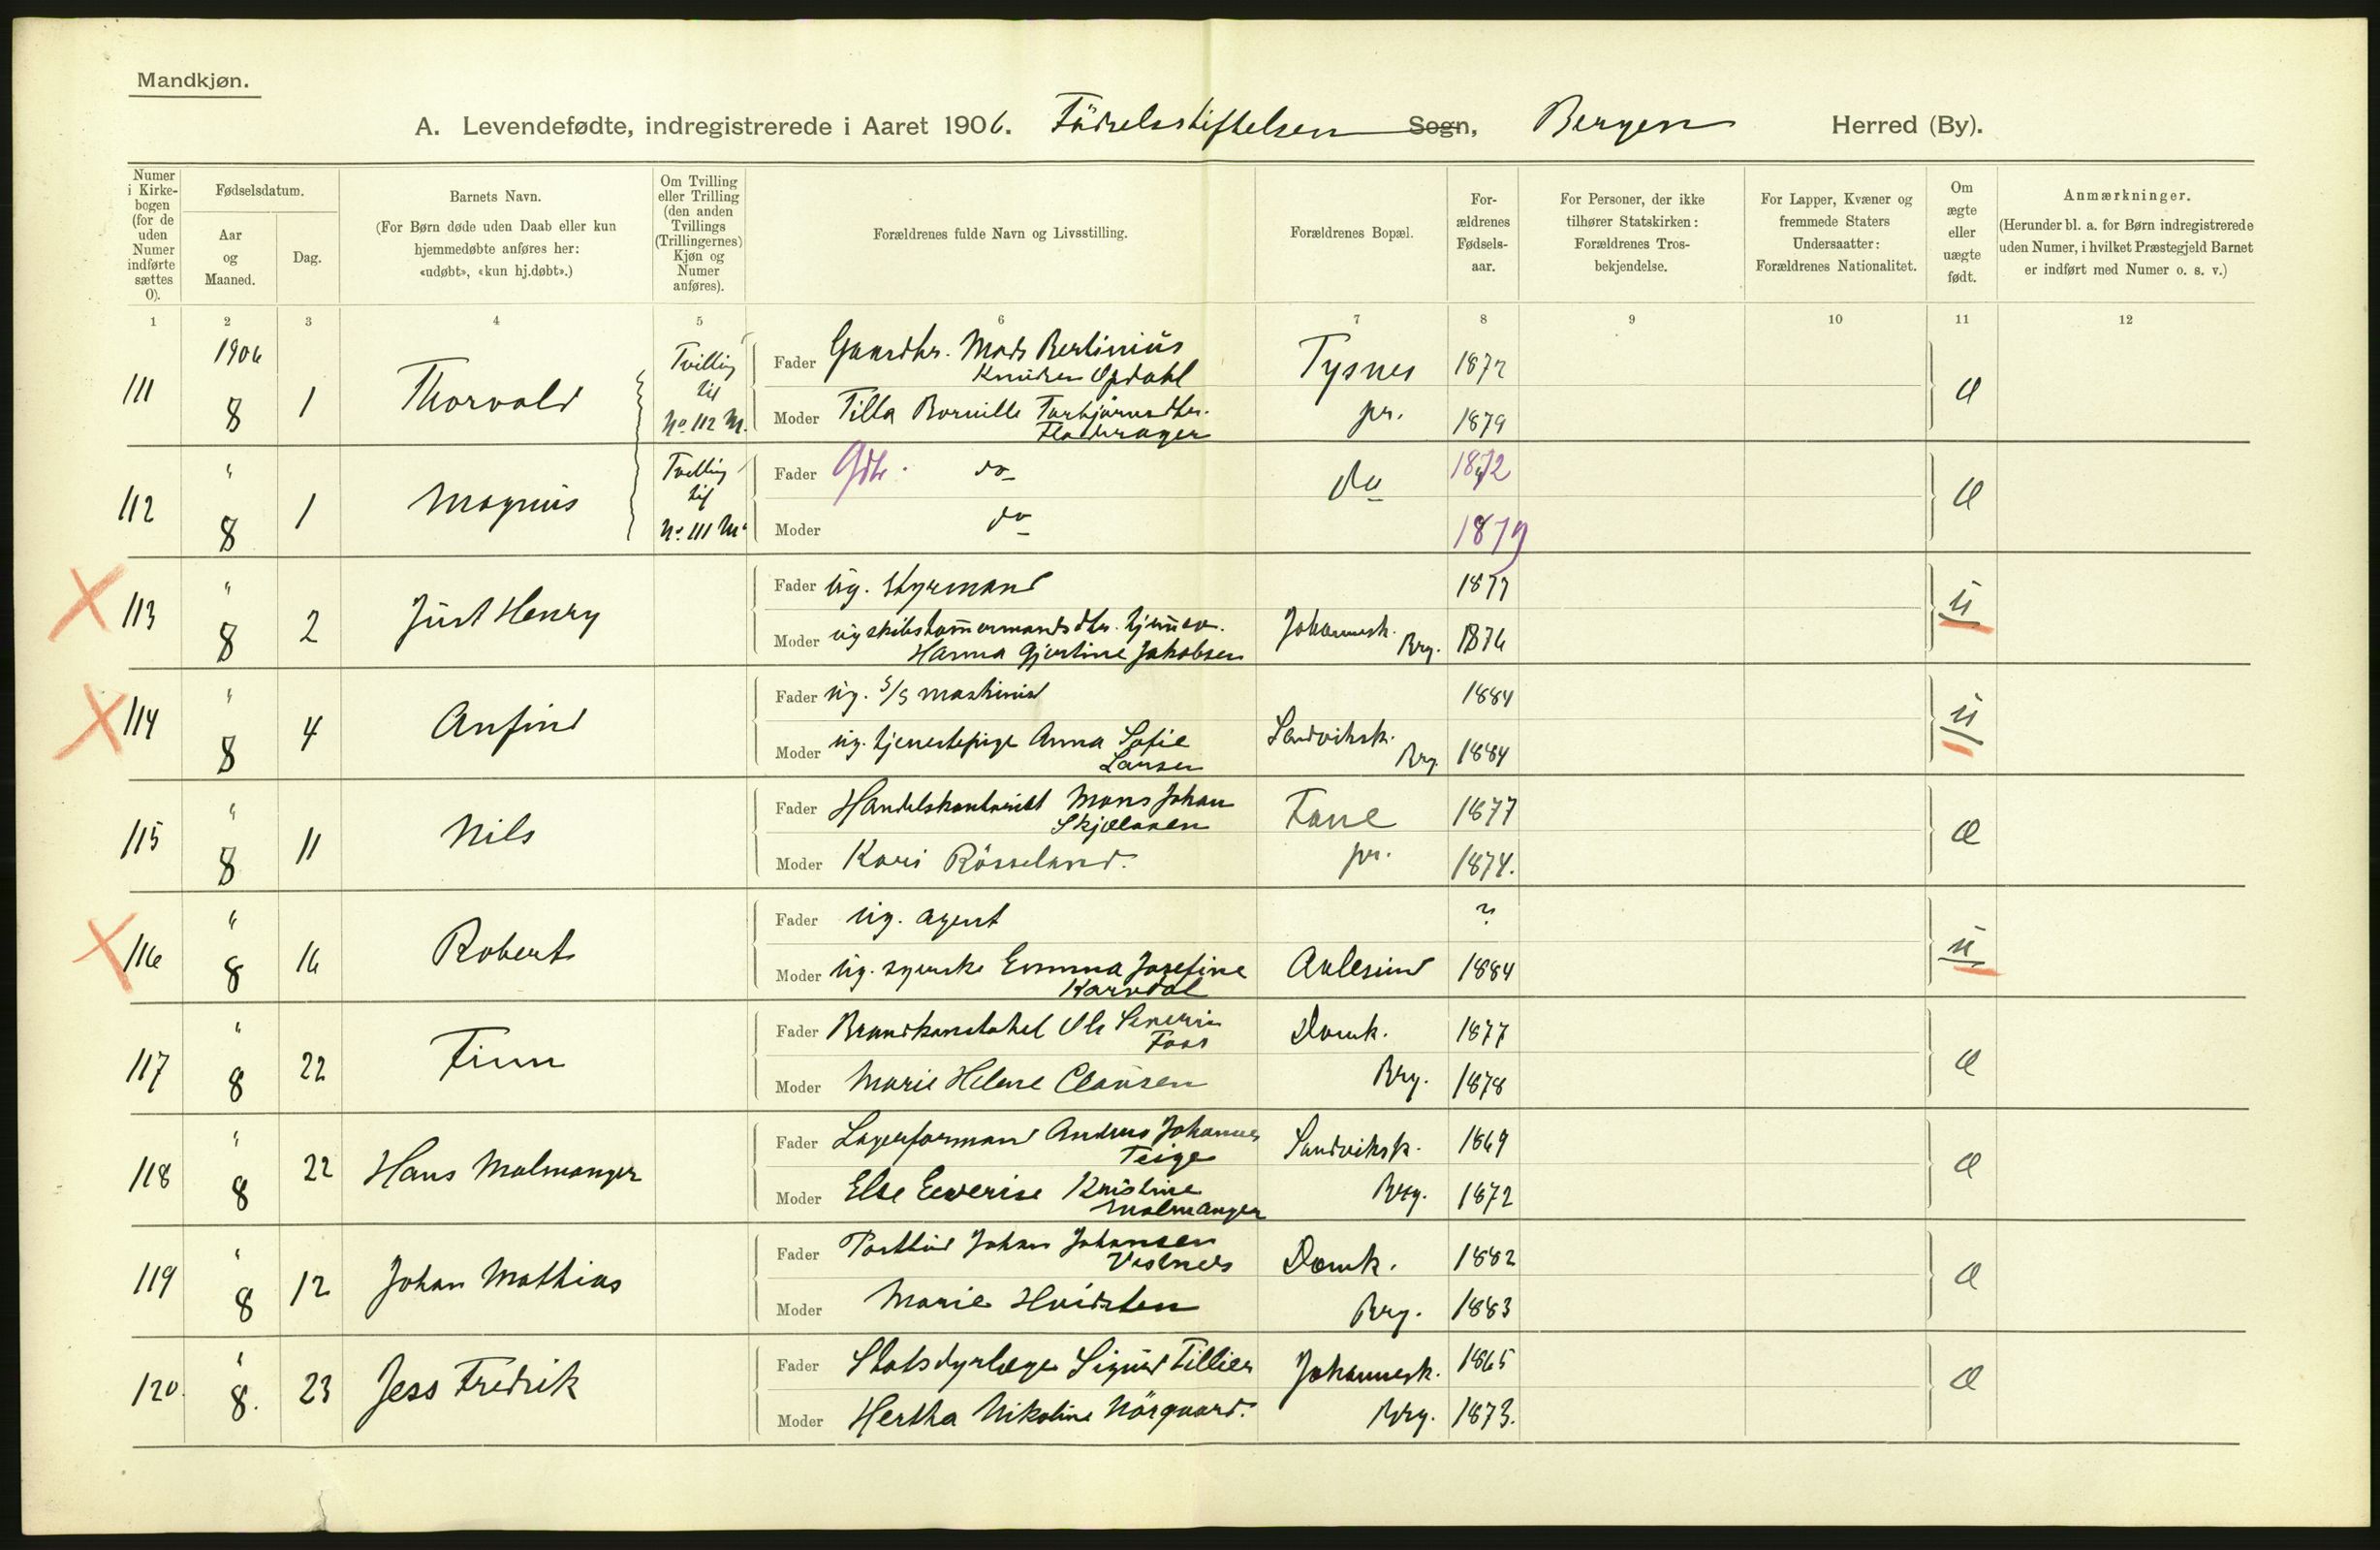 Mandkjøn.
A. Levendefødte, indregistrerede i Aaret 1906. Födselsstiftelsen Sogn, Bergen Herred (By).
Numer i Kirke-bogen (for de uden Numer indførte sættes 0).
Fødselsdatum.
Aar og Maaned.
Dag.
Barnets Navn.
(For Børn døde uden Daab eller kun
hjemmedøbte anføres her:
«udøbt», «kun hj.døbt».)
Om Tvilling
eller Trilling
(den anden
Tvillings
(Trillingernes)
Kjøn og
Numer
anføres).
Forældrenes fulde Navn og Livsstilling.
Forældrenes Bopæl.
For-
ældrenes
Fødsels-
aar.
For Personer, der ikke
tilhører Statskirken:
Forældrenes Tros-
bekjendelse.
For Lapper, Kvæner og
fremmede Staters
Undersaatter:
Forældrenes Nationalitet.
Om
ægte
eller
uægte
født.
Anmærkninger.
(Herunder bl. a. for Børn indregistrerede
uden Numer, i hvilket Præstegjeld Barnet
er indført med Numer o. s. v.)
1 2 3 4 5 6 7 8 9 10 11 12
1906
111 8 1 Thorvald Tvilling til No 112 M.
Fader Gaardbr. Mads Bertinius
Knudsen Opdahl Tysnes 1872
Moder Tilla Bornille Torbjørnsdtr.
pr. 1879 æ
112 " 8 1 Magnus Tvilling til No 111 M.
Fader Gbr. do do 1872
Moder do 1879 æ
113 " 8 2 Just Henry
Fader ug. Styrmand 1877
Moder ug skibstømmermandsdtr. hjemmev.
Hanna Gjertine Jakobsen Johannesk. Brg. 1876 u
114 " 8 4 Anfind
Fader ug. S/S maskinist 1884
Moder ug. tjenestepige Anna Sofie
Larsen Sandviksk. Brg. 1884 u
115 " 8 11 Nils
Fader Handelskontorist Mons Johan
Skjælaaen Fane 1877
Moder Kari Rösseland. pr. 1874. æ
116 " 8 16 Robert
Fader ug. agent ?
Moder ug. syerske Emma Josefine
Aalesund 1884 u
117 " 8 22 Finn
Fader Brandkonstabel Ole Severin
Foss Domk. 1877
Moder Marie Helene Clausen Brg. 1878 æ
118 " 8 22 Hans Malmanger
Fader Lagerformand Andreas Johannes
Teige Sandviksk. 1869
Moder Else Kristine
Malmanger Brg. 1872 æ
119 " 8 12 Johan Mathias
Fader Postbud Johan Johansen
Vestnes Domk. 1882
Moder Marie Hvidsten Brg. 1883 æ
120. " 8. 23 Jess Fredrik
Fader Statsdyrlæge Sigurd Tillier Johannesk. 1865
Moder Hertha Nikoline Nörgaard. Brg. 1873. æ